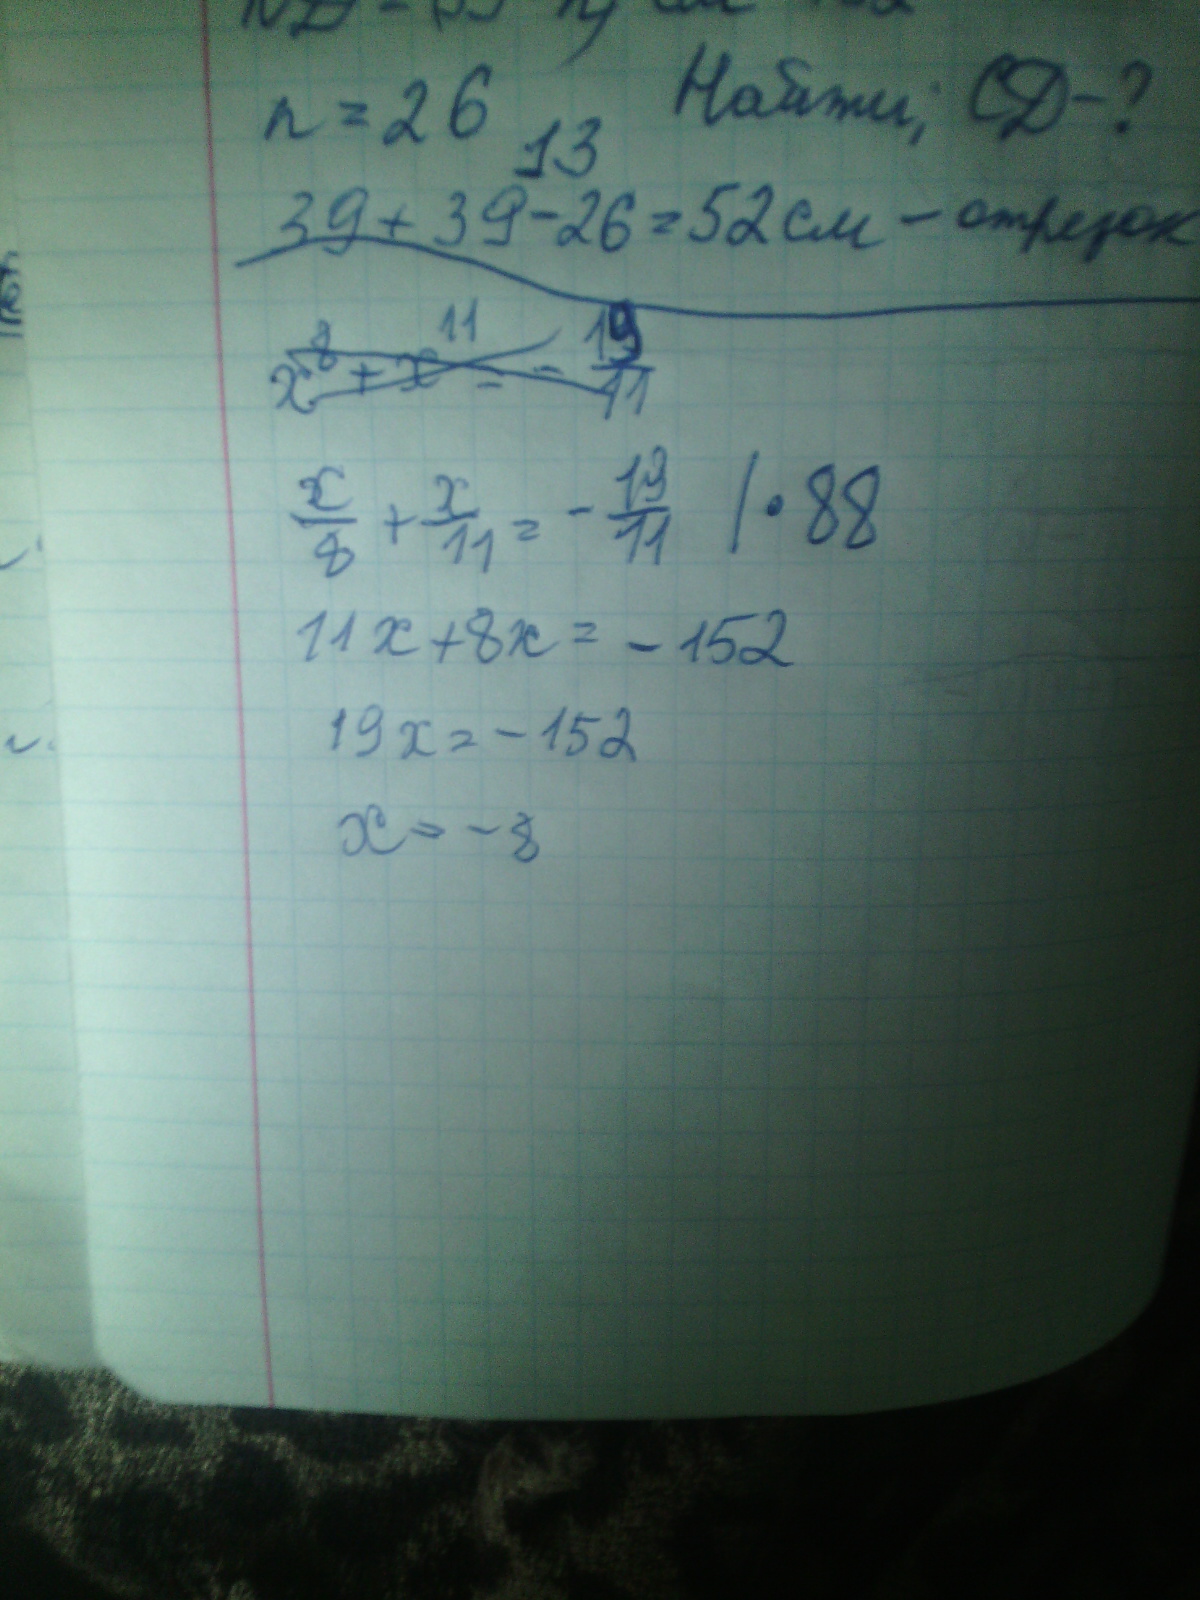 n = 26 Найти; CD - ?
13
39 + 39 - 26 = 52 см - отрезок
x/8 + x/11 = - 19/11 | · 88
11x + 8x = - 152
19x = - 152
x = - 8